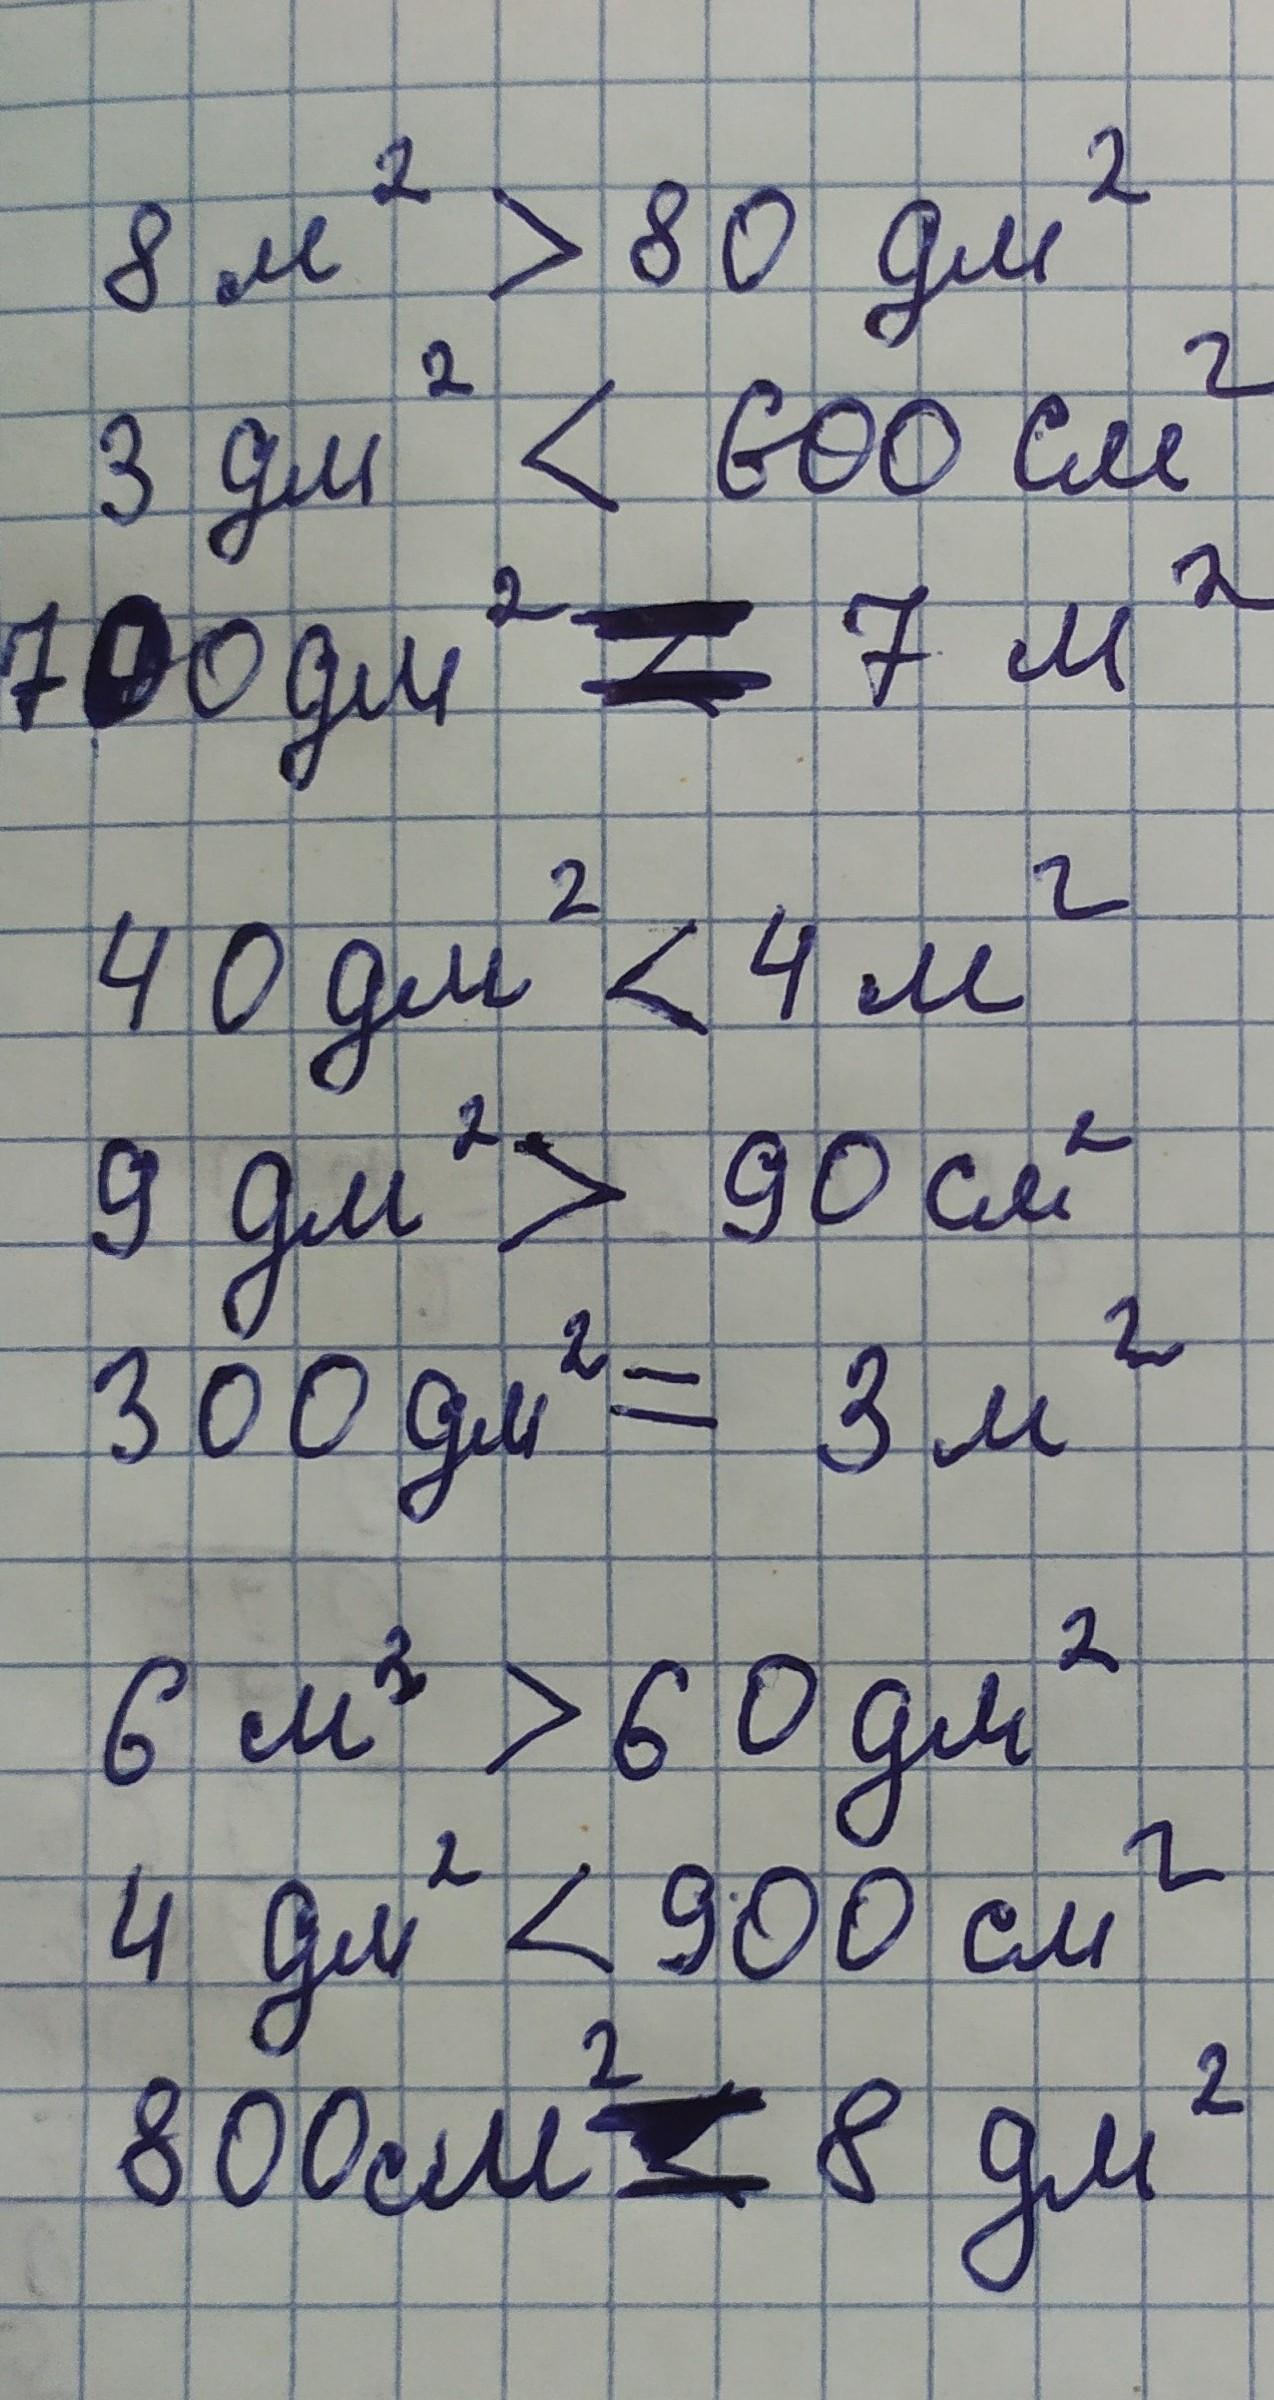 8 м² > 80 дм²
3 дм² < 600 см²
700 дм² = 7 м²
40 дм² < 4 м²
9 дм² > 90 см²
300 дм² = 3 м²
6 м² > 60 дм²
4 дм² < 900 см²
800 см² = 8 дм²